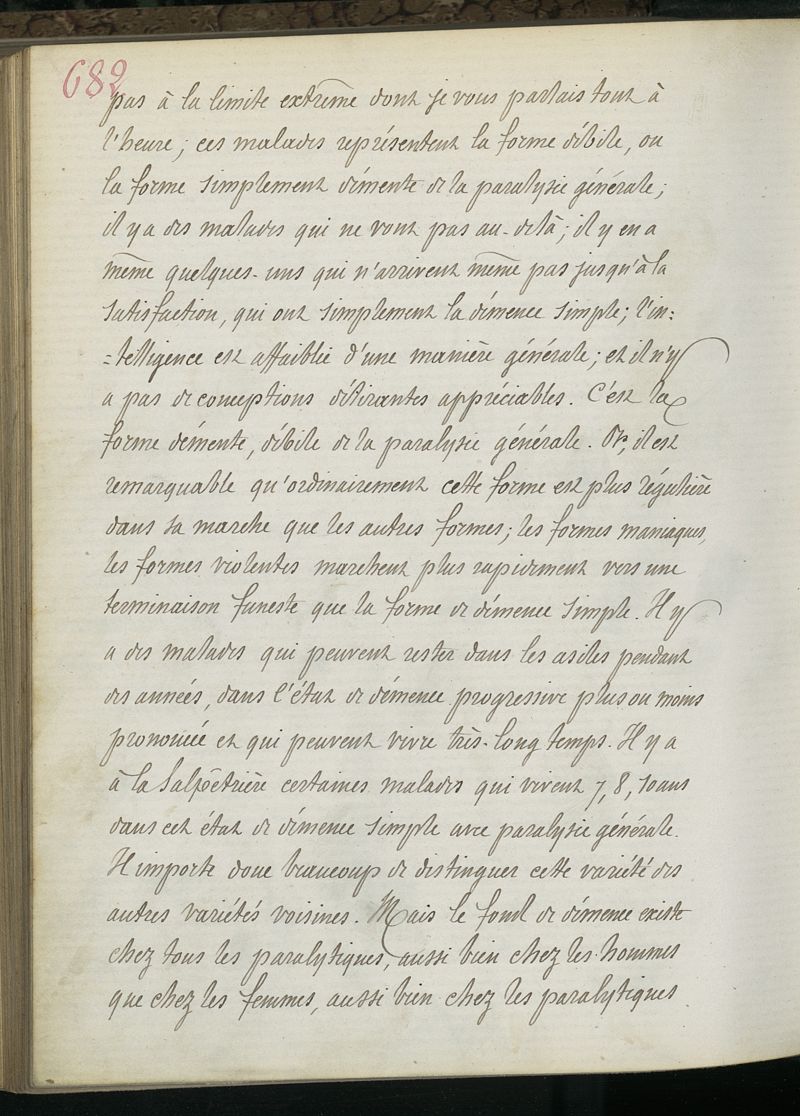 682
pas à la limite extrême dont je vous parlais tout à
l'heure; ces malades représentent la forme débile, ou
la forme simplement démente de la paralysie générale;
il y a des malades qui ne vont pas au-delà; il y en a
même quelques-uns qui n'arrivent même pas jusqu'à la
satisfaction, qui ont simplement la démence simple; l'in=
=telligence est affaiblie d'une manière générale; et il n'y
a pas de conceptions délirantes appréciables. C'est la
forme démente, débile de la paralysie générale. Or, il est
remarquable qu'ordinairement cette forme est plus régulière
dans sa marche que les autres formes; les formes maniaques,
les formes violentes marchent plus rapidement vers une
terminaison funeste que la forme de démence simple. Il y
a des malades qui peuvent rester dans les asiles pendant
des années, dans l'état de démence progressive plus ou moins
prononcée et qui peuvent vivre très-long temps. Il y a
à la Salpêtrière certaines malades qui vivent 7, 8, 10 ans
dans cet état de démence simple avec paralysie générale.
Il importe donc beaucoup de distinguer cette variété des
autres variétés voisines. Mais le fond de démence existe
chez tous les paralytiques, aussi bien chez les hommes
que chez les femmes, aussi bien chez les paralytiques